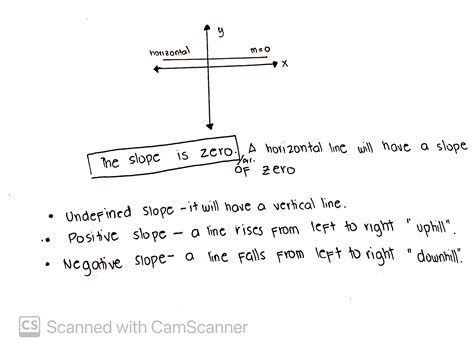 y
horizontal m=0
x
The slope is zero. A horizontal line will have a slope
OF zero
• Undefined slope - it will have a vertical line.
• Positive slope – a line rises from left to right "uphill".
• Negative slope- a line falls from left to right "downhill".
CS Scanned with CamScanner